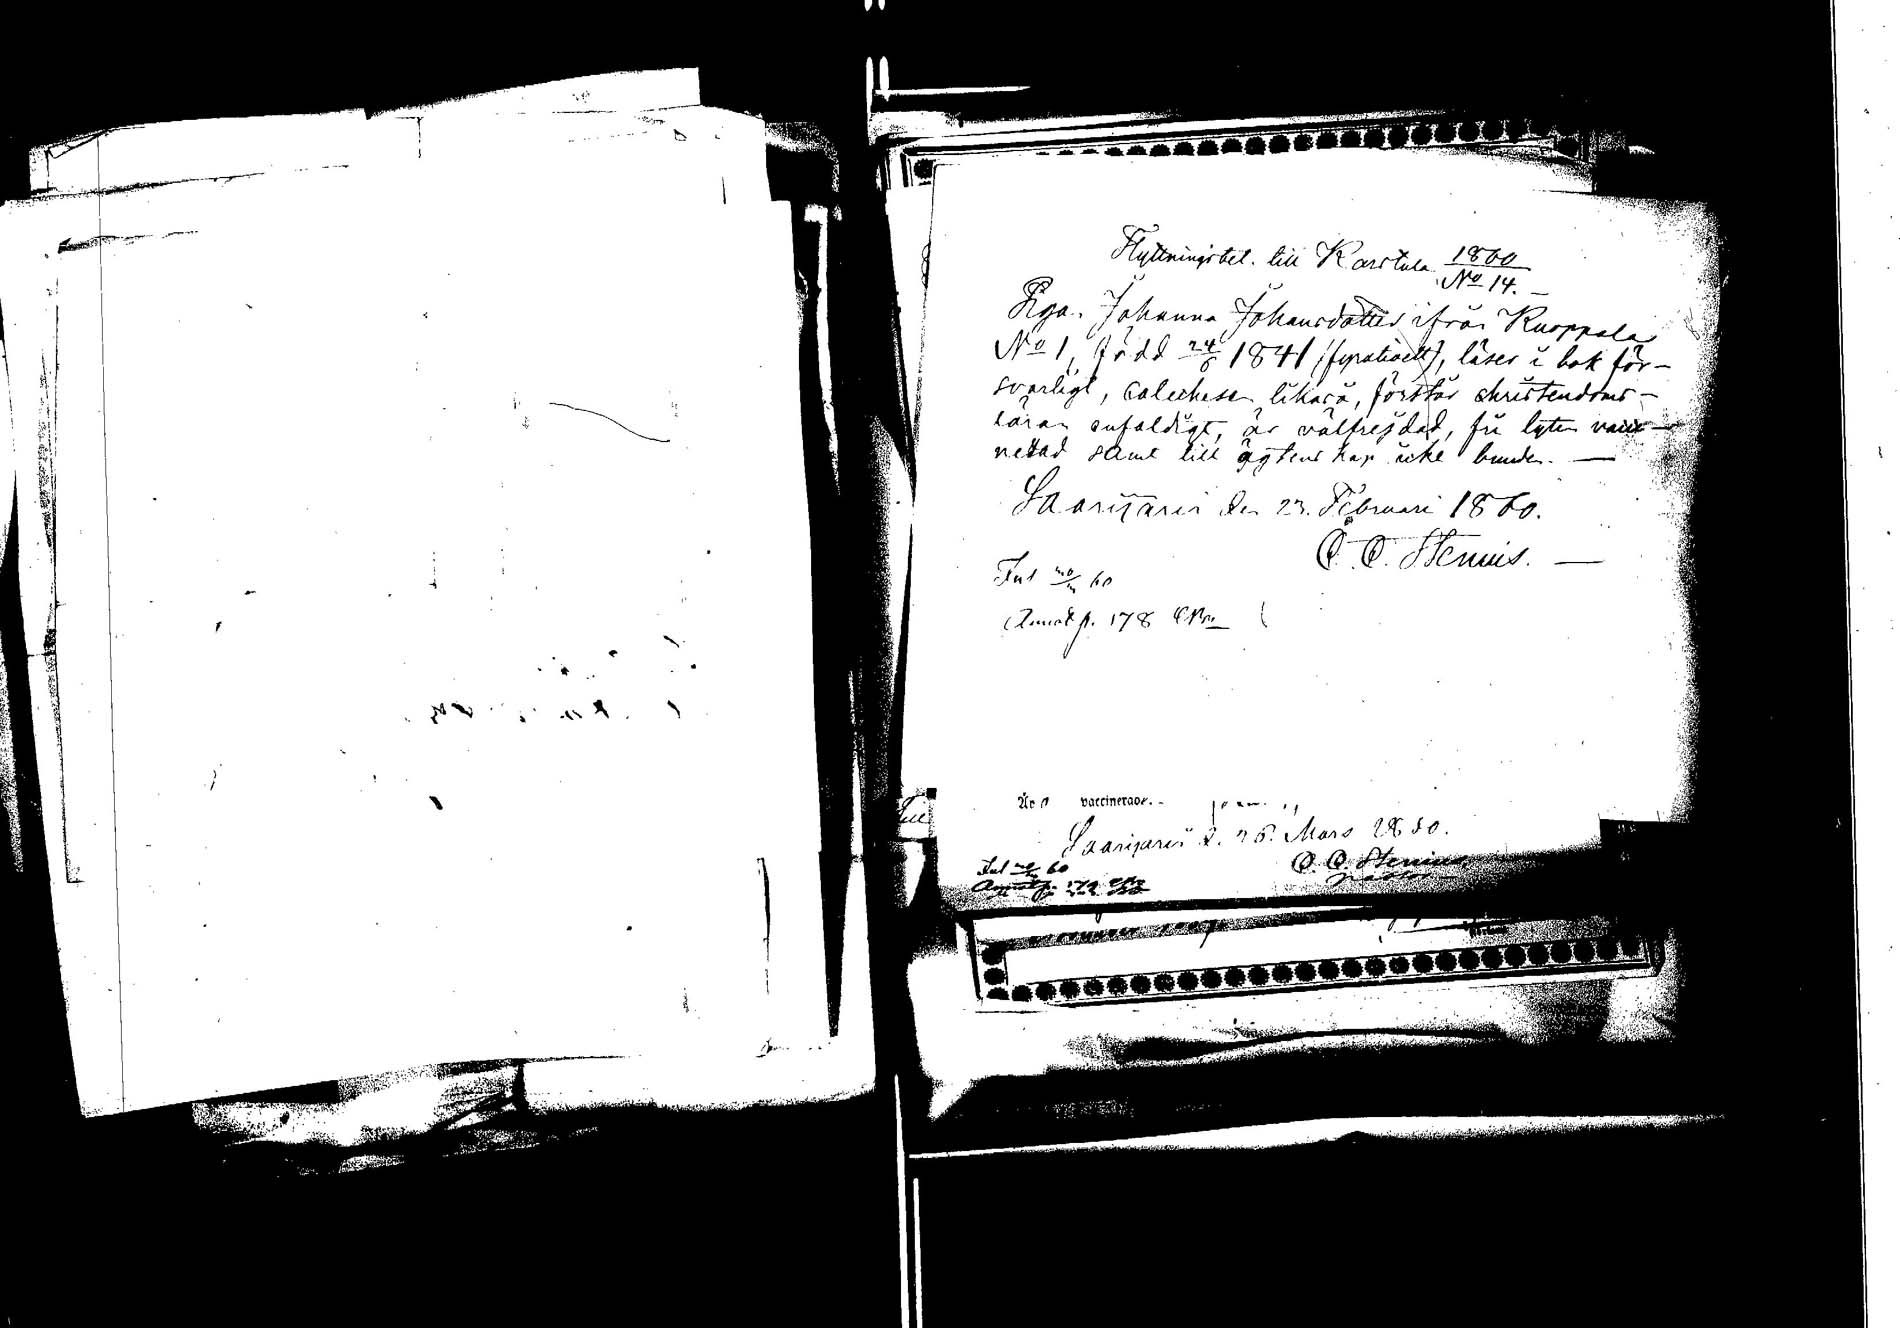 Flyttningsbet. till Karstula 1860
No 14.
Piga. Johanna Johansdotter ifrån Kuoppala
No 1, född 24/6 1841 (fyratioett), läser i bok för-
svarligt, catechesen likaså, förstår christendoms-
läran enfaldigt, är välfrejdad, fri lyten vacci-
nerad samt till ägtenskap icke bunden. —
Saarijärvi den 23. Februari 1860.
C. C. Stenius. —
Inl 60
Annot p. 178
Är vaccinerad.
Saarijärvi d. 26. Mars 1860.
Inl 60
C. C. Stenius